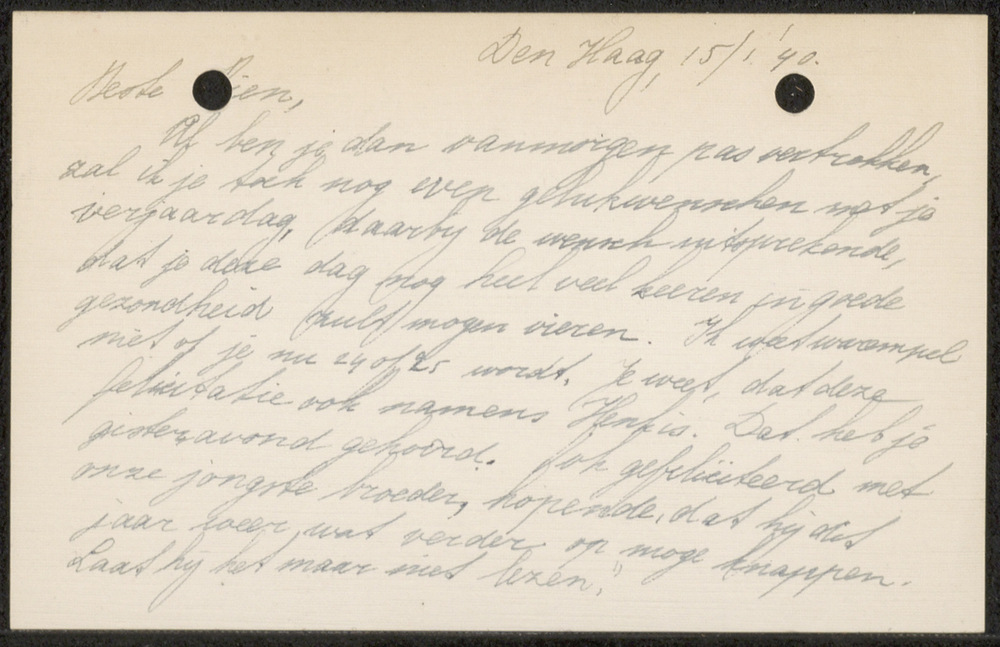 Den Haag, 15/1 '40.
Beste Rien,
Al ben je dan vanmorgen pas vertrokken,
zal ik je toch nog even gelukwenschen met je
verjaardag, daarby de wensch uitsprekende,
dat je deze dag nog heel veel keeren in goede
gezondheid zult mogen vieren. Ik weet waarempel
niet of je nu 24 of 25 wordt. Je weet, dat deze
felicitatie ook namens Henk is. Dat heb je
gisteravond gehoord. Ook gefeliciteerd met
onze jongste broeder, hopende, dat hij dit
jaar weer wat verder op moge knappen.
Laat hij het maar niet lezen."